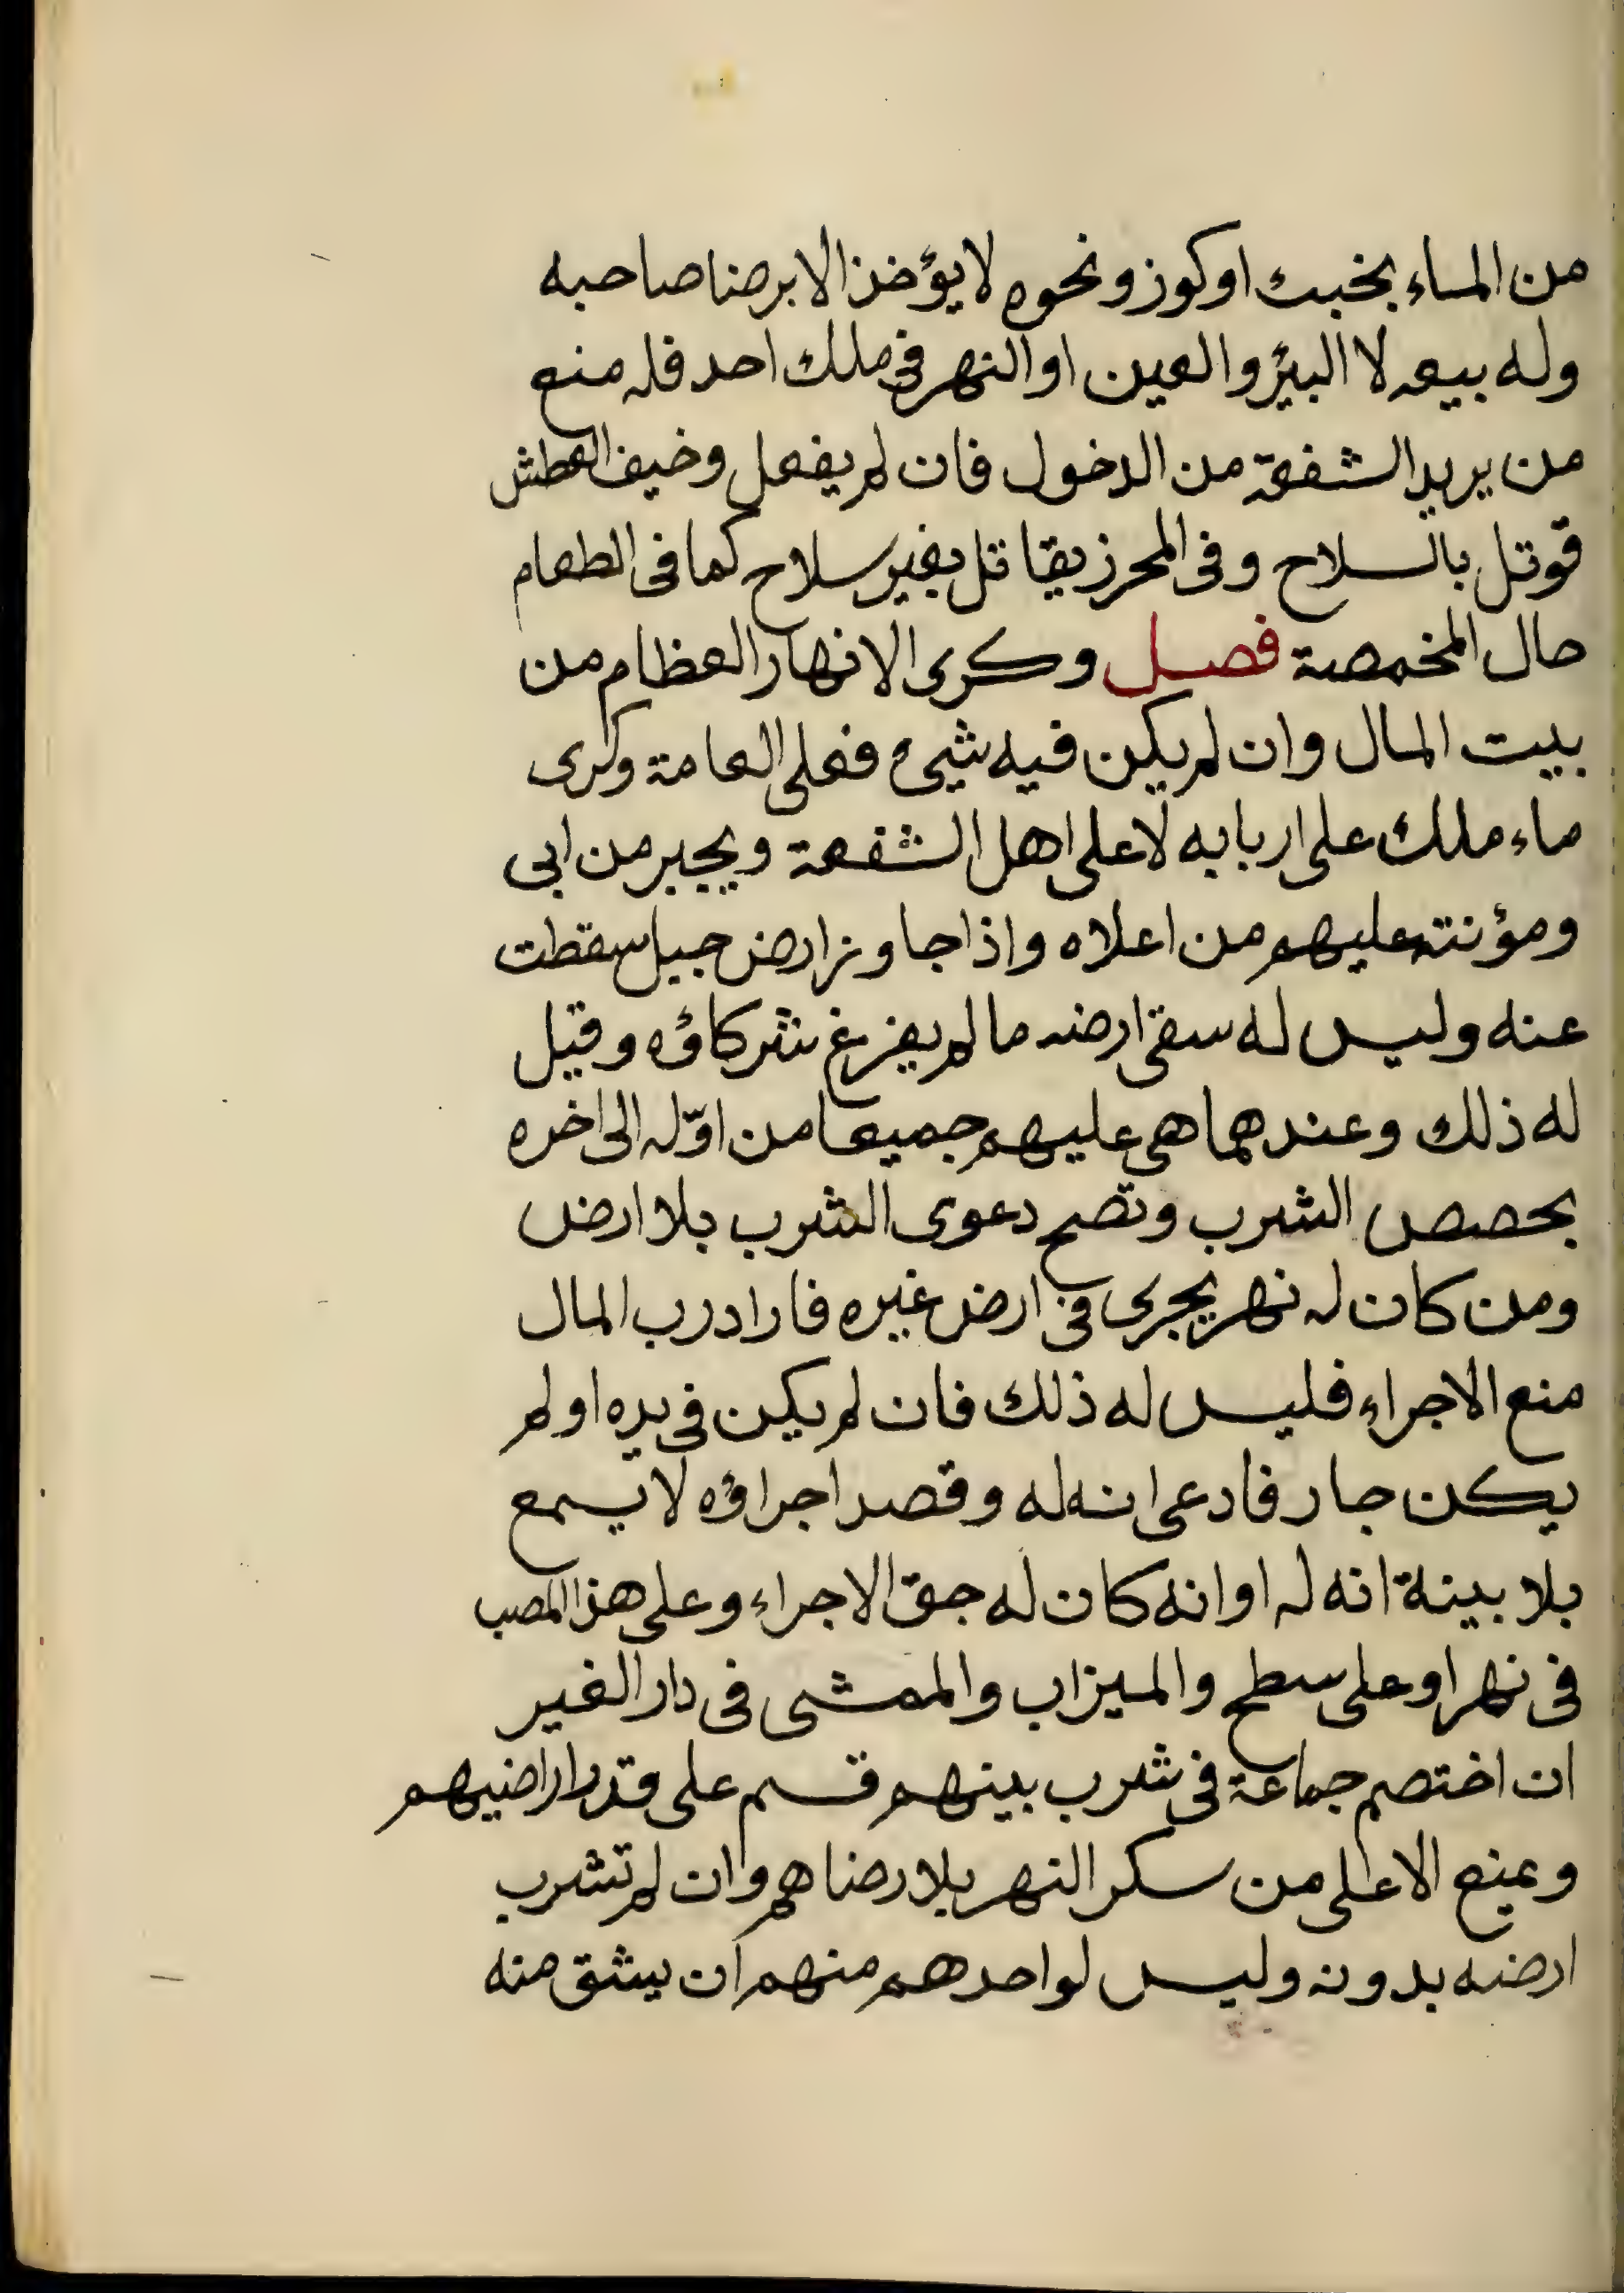 من الماء بخبث او كوز ونحوه لا يؤخذ الا برضا صاحبه
وله بيعه لا البئر والعين او النهر في ملك احد فله منع
من يريد الشفعة من الدخول فان لم يفعل وخيف العطش
قوتل بالسلاح وفى المحرز يقاتل بغير سلاح كما فى الطعام
حال المخمصة فصل وكرى الانهار العظام من
بيت المال وان لم يكن فيه شيئ فعلى العامة وكرى
ماء ملك على اربابه لا على اهل الشفعة ويجبر من ابى
ومؤنته عليهم من اعلاه واذا جاوز ارض جبل سقطت
عنه وليس له سقى ارضه ما لم يفرغ شركاؤه وقيل
له ذلك وعندهما هى عليهم جميعا من اوّله الى اخره
بحصص الشرب وتصح دعوى الشرب بلا ارض
ومن كان له نهر يجرى فى ارض غيره فاراد رب المال
منع الاجراء فليس له ذلك فان لم يكن فى يده او لم
يكن جار فادعى انه له وقصد اجراؤه لا يسمع
بلا بينة انه له او انه كان له حق الاجراء وعلى هذا المصب
فى نهر او على سطح والميزاب والممشى فى دار الغير
ان اختصم جماعة فى شرب بينهم قسم على قدر اراضيهم
ويمنع الاعلى من سكر النهر بلا رضاهم وان لم تشرب
ارضه بدونه وليس لواحدهم منهم ان يشق منه